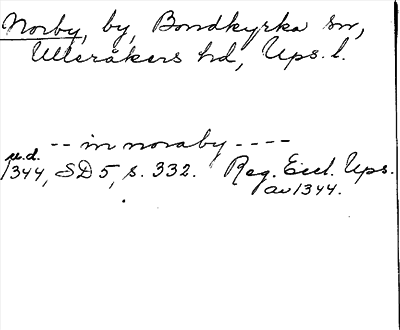 Norby, by, Bondkyrka sn,
Ulleråkers hd, Ups. l.
-- in noraby ----
u.d.
1344, SD 5, s. 332. Reg. Eccl. Ups.
av 1344.